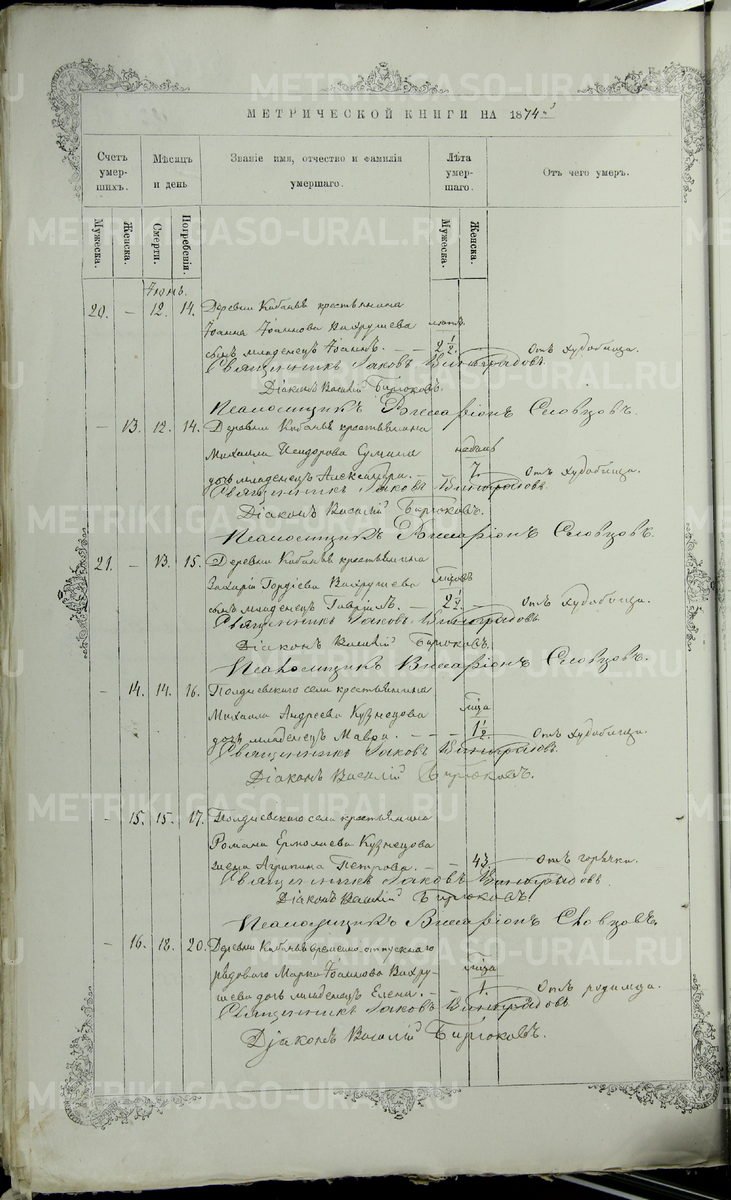 МЕТРИЧЕСКОЙ КНИГИ НА 1874
Счетъ умер- шихъ. Мѣсяцъ и день Званіе имя, отчество и фамилія умершаго. Лѣта умер- шаго. Отъ чего умеръ.
Мужеска. Женска. Смерти. Погребенія. Мужеска. Женска.
Іюнь.
20. – 12. 14. Деревни Кабаньѣ крестьянина
Іоанна Іоаннова Вахрушева
сынъ младенецъ Іоаннъ. 2 1/2. Отъ худобища.
Священникъ Іаковъ Виноградовъ.
Діаконъ Василій Бирюковъ.
Псаломщикъ Виссаріонъ Словцовъ.
– 13. 12. 14. Деревни Кабаньѣ крестьянина
Михаила Сумина недѣль
дочь младенецъ Александра. 7. Отъ худобища.
Священникъ Іаковъ Виноградовъ.
Діаконъ Василій Бирюковъ.
Псаломщикъ Виссаріонъ Словцовъ.
21. – 13. 15. Деревни Кабаньѣ крестьянина
Захарія Гордіева Вахрушева
сынъ младенецъ Гавріилъ. 2 1/2. Отъ худобища.
Священникъ Іаковъ Виноградовъ.
Діаконъ Василій Бирюковъ.
Псаломщикъ Виссаріонъ Словцовъ.
– 14. 14. 16. Полдневскаго села крестьянина
Михаила Андреева Кузнецова года
дочь младенецъ Мавра. 1 1/2. Отъ худобища.
Священникъ Іаковъ Виноградовъ.
Діаконъ Василій Бирюковъ.
– 15. 15. 17. Полдневскаго села крестьянина
Романа Ермолаева Кузнецова
жена Агрипина Петрова. 43. Отъ горячки.
Священникъ Іаковъ Виноградовъ.
Діаконъ Василій Бирюковъ.
Псаломщикъ Виссаріонъ Словцовъ.
– 16. 18. 20. Деревни Кабаньѣ временно отпускнаго
рядоваго Марка Іоаннова Вахру-
шева дочь младенецъ Елена. 1. Отъ родимца.
Священникъ Іаковъ Виноградовъ
Діаконъ Василій Бирюковъ.
METRIKI.GASO-URAL.RU